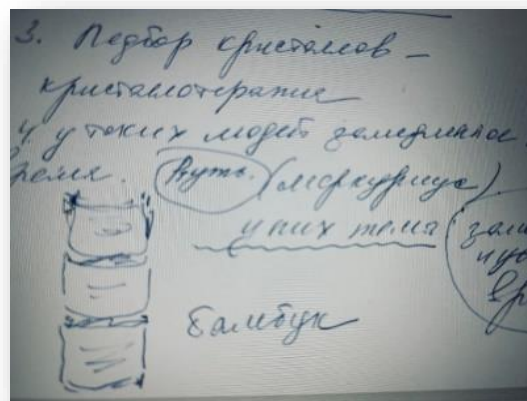 3. Подбор кристаллов –
кристаллотерапия
4. у таких людей замедленное
время. Ртуть. (меркуриус)
у них тема
бамбук